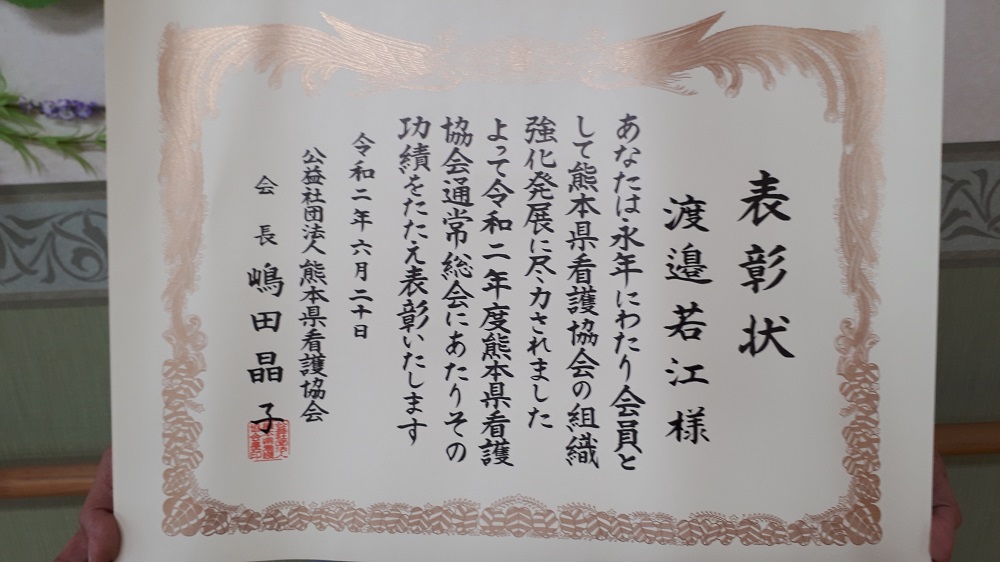 表彰状
渡邉若江様
あなたは永年にわたり会員と
して熊本県看護協会の組織
強化発展に尽力されました
よって令和二年度熊本県看護
協会通常総会にあたりその
功績をたたえ表彰いたします
令和二年六月二十日
公益社団法人熊本県看護協会
会長嶋田晶子